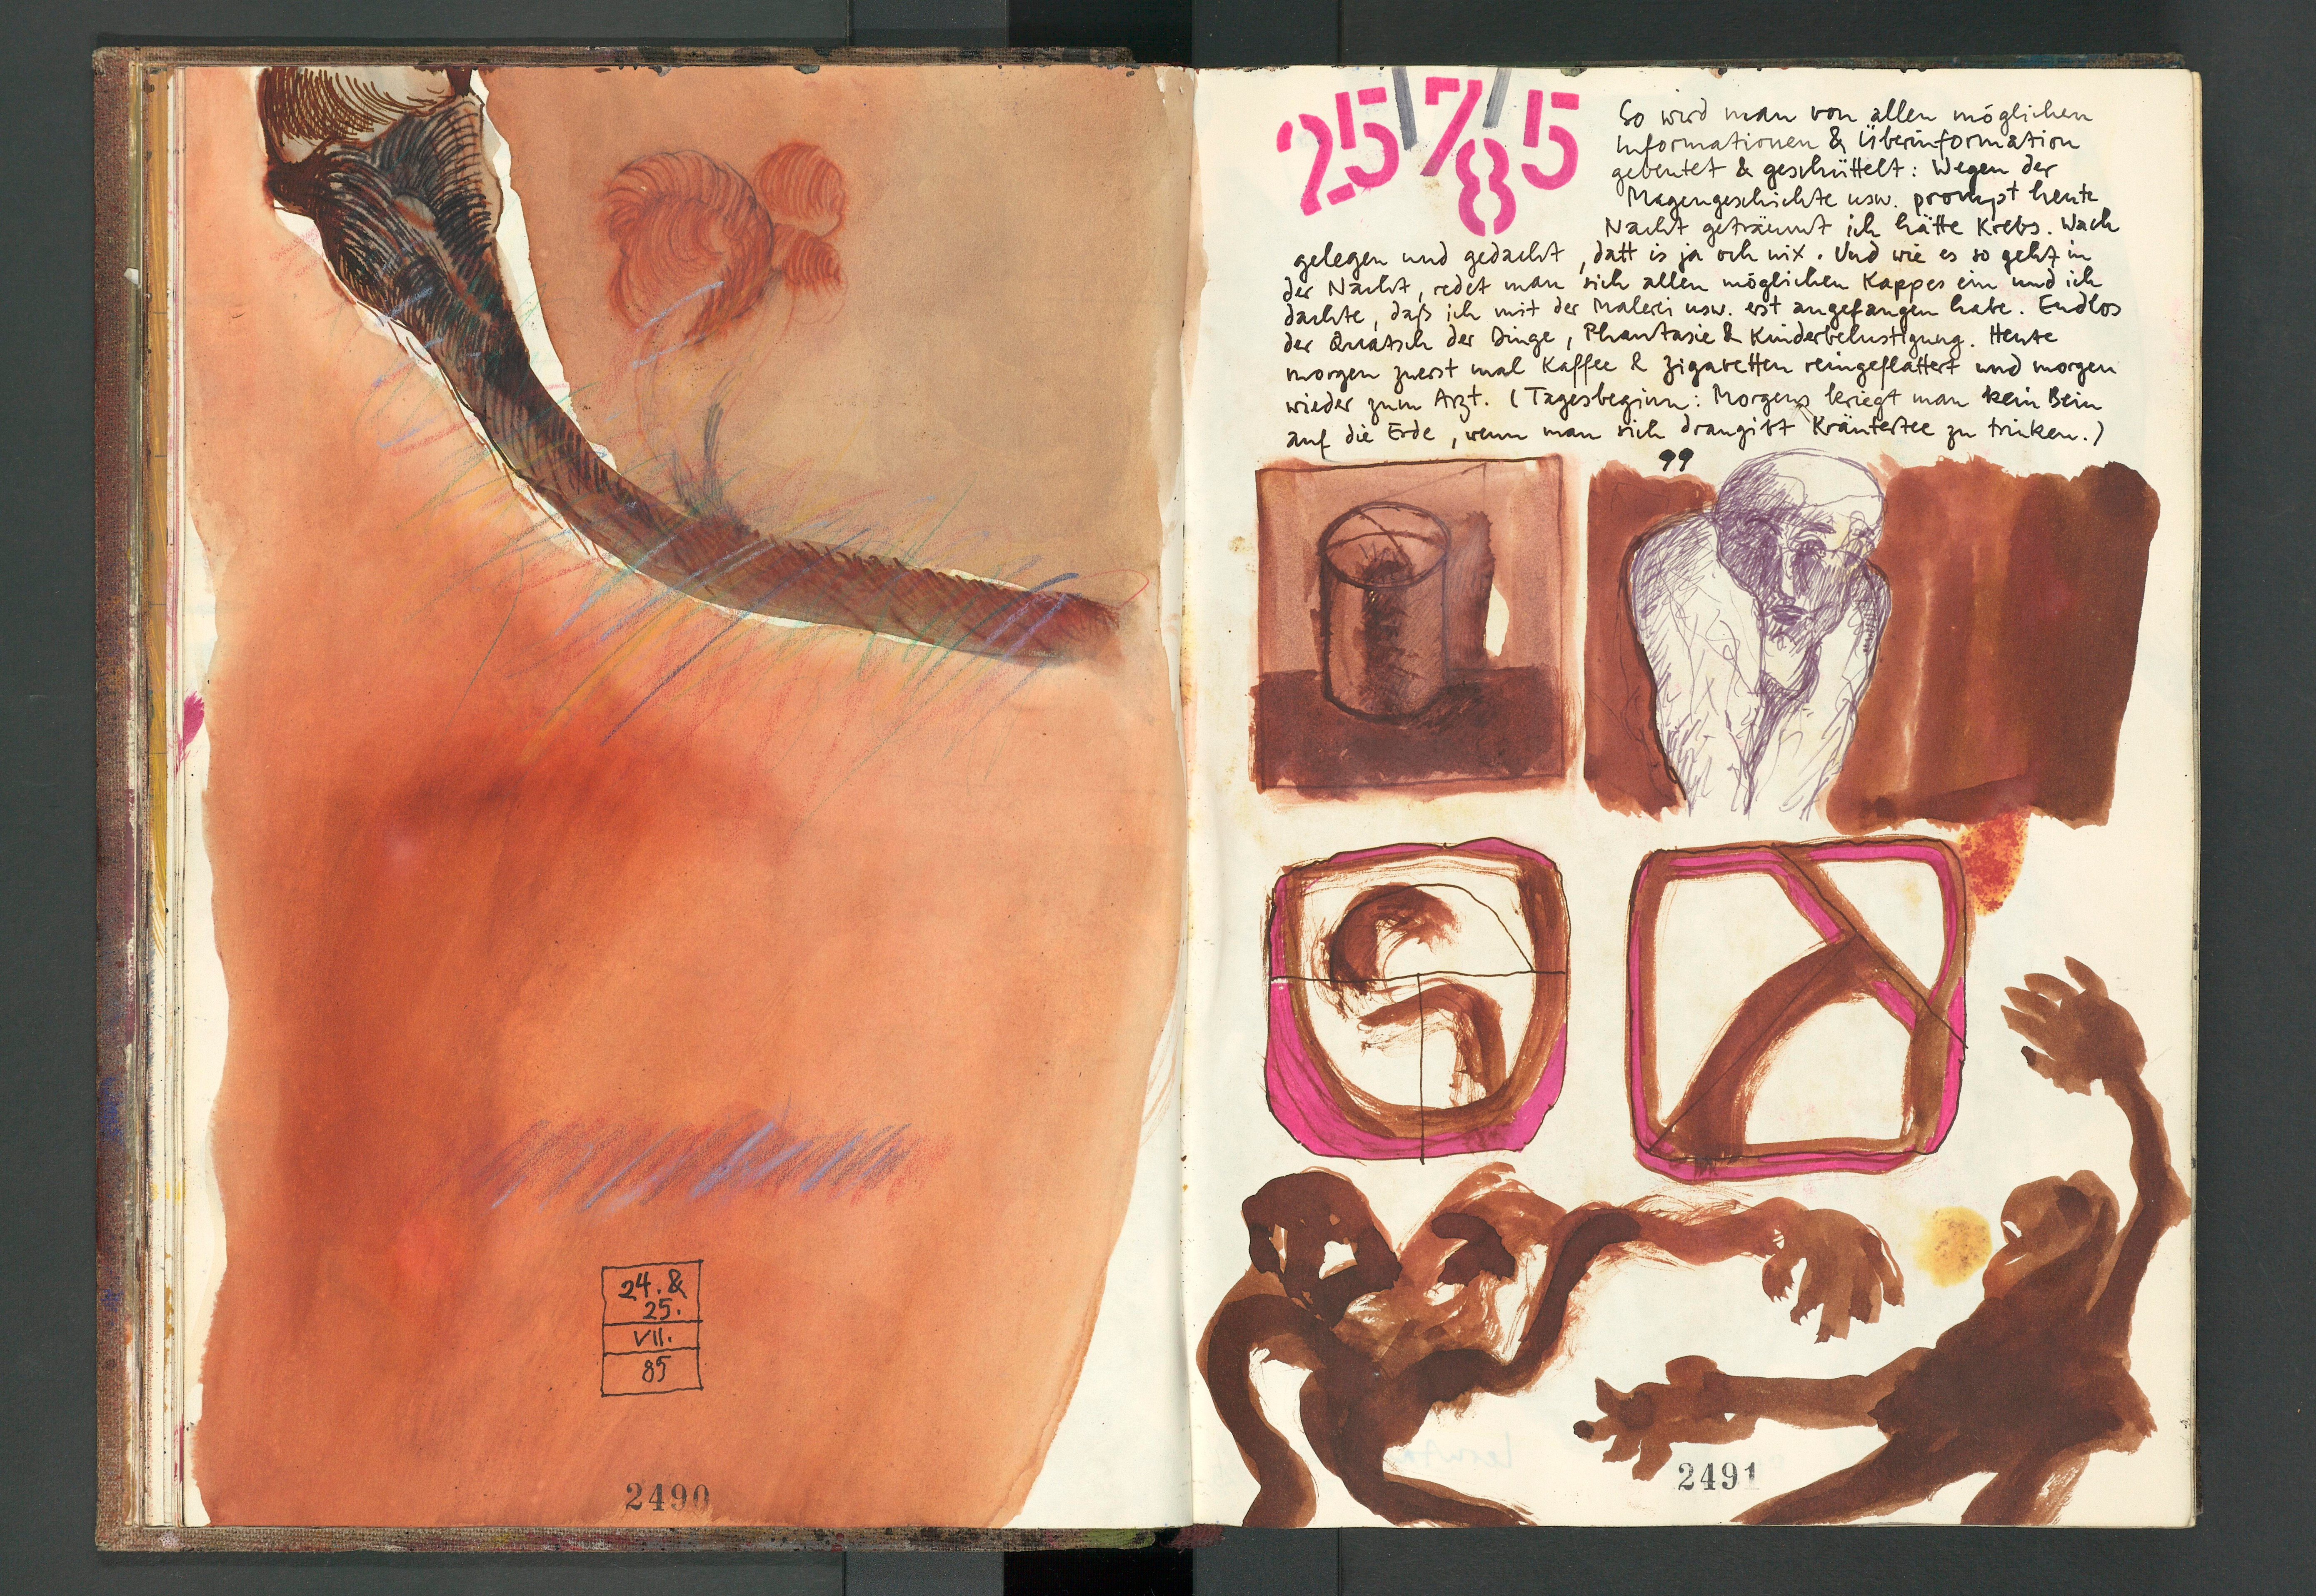 24. &
25.
VII.
85
2490
25/7/85
So wird man von allen möglichen
Informationen & Überinformation
gebeutet & geschüttelt: Wegen der
Magengeschichte usw. prompt heute
Nacht geträumt ich hätte Krebs. Wach
gelegen und gedacht, datt is ja och nix. Und wie es so geht in
der Nacht, redet man sich allen möglichen Kappes ein und ich
dachte, daß ich mit der Malerei usw. erst angefangen habe. Endlos
der Quatsch der Dinge, Phantasie & Kinderbelustigung. Heute
morgen zuerst mal Kaffee & Zigaretten reingeflattert und morgen
wieder zum Arzt. (Tagesbeginn: Morgens kriegt man kein Bein
auf die Erde, wenn man sich drangibt Kräutertee zu trinken.)
2491